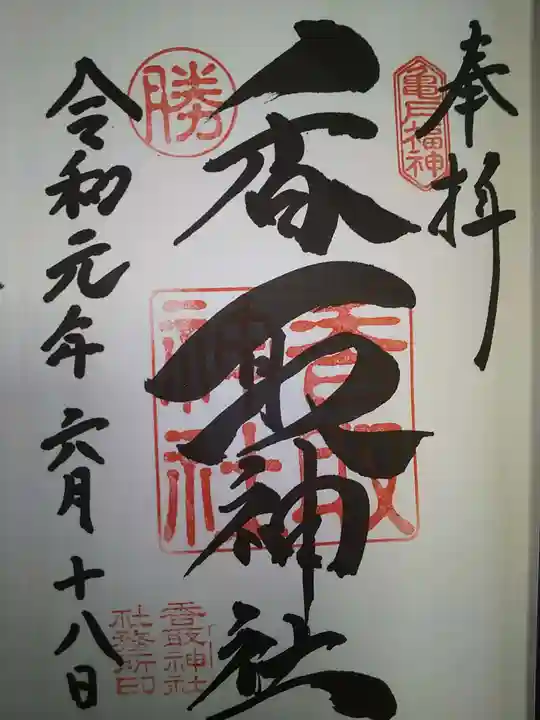 奉拝
亀戸福神
香取神社
香取
神社
香取神社
社務所印
勝
令和元年六月十八日